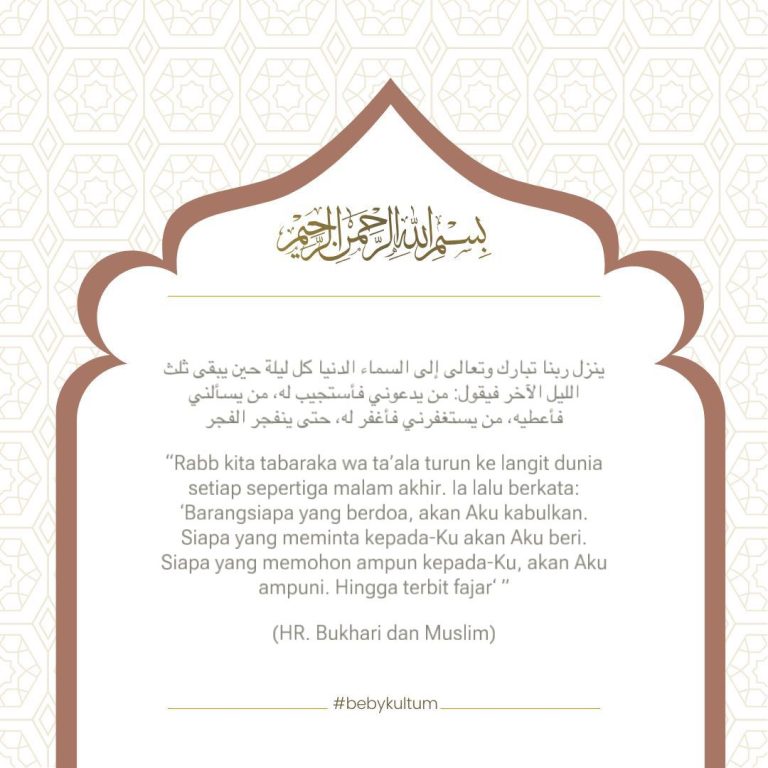 بِسْمِ اللهِ الرَّحْمٰنِ الرَّحِيْمِ
ينزل ربنا تبارك وتعالى إلى السماء الدنيا كل ليلة حين يبقى ثلث
الليل الآخر فيقول: من يدعوني فأستجيب له، من يسألني
فأعطيه، من يستغفرني فأغفر له، حتى ينفجر الفجر
“Rabb kita tabaraka wa ta’ala turun ke langit dunia
setiap sepertiga malam akhir. Ia lalu berkata:
‘Barangsiapa yang berdoa, akan Aku kabulkan.
Siapa yang meminta kepada-Ku akan Aku beri.
Siapa yang memohon ampun kepada-Ku, akan Aku
ampuni. Hingga terbit fajar‘ ”
(HR. Bukhari dan Muslim)
#bebykultum